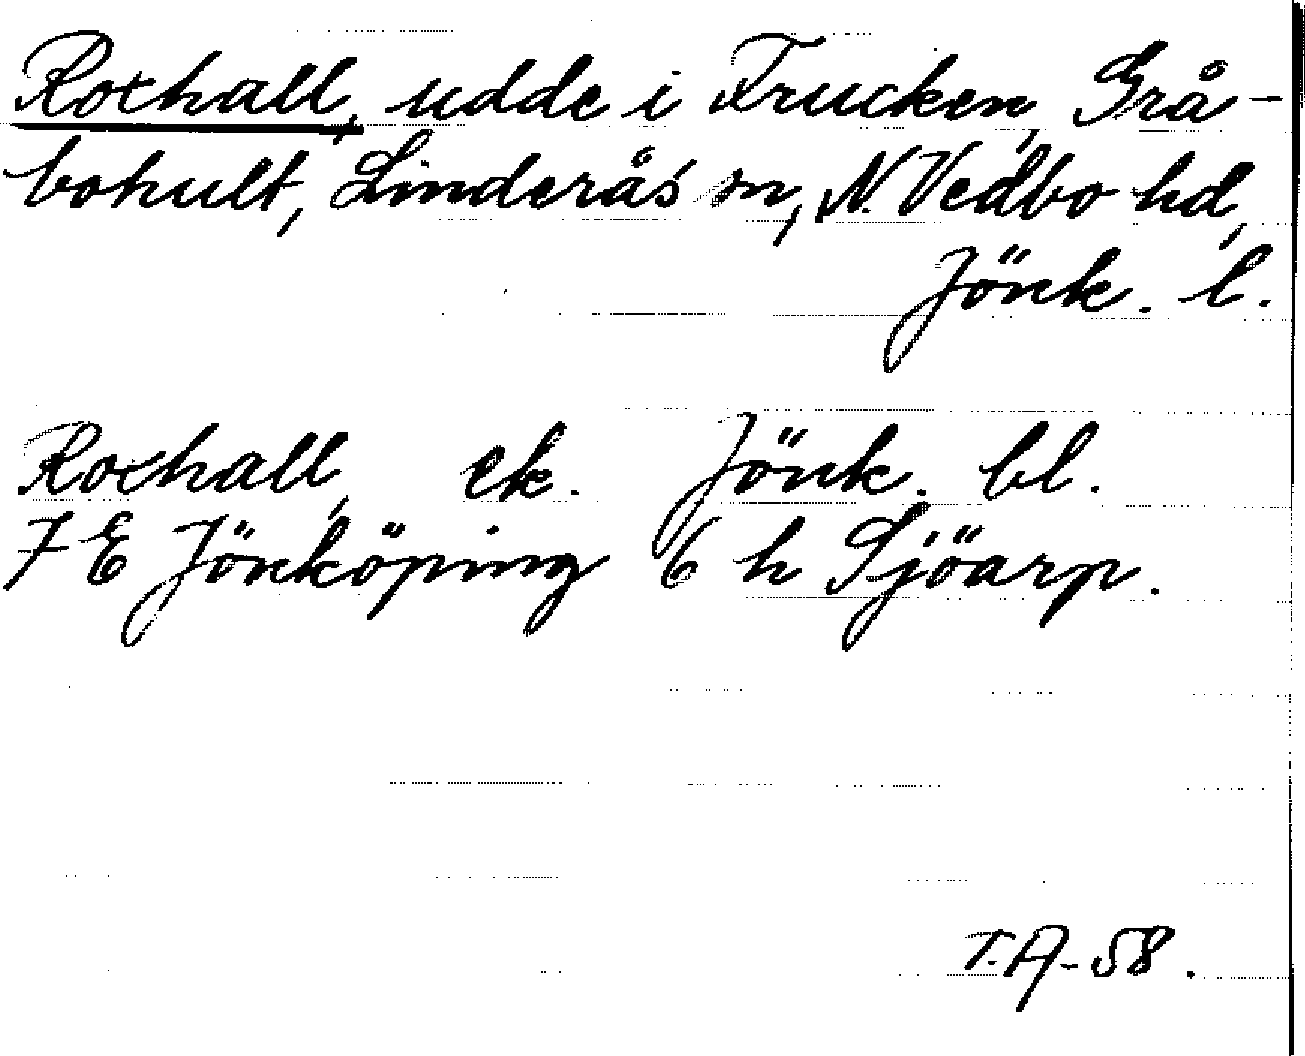 Roxhall, udde i Trucken, Grå-
bohult, Linderås sn, N. Vedbo hd,
Jönk. l.
Roxhall, ek. Jönk. bl.
7 E Jönköping 6 h Sjöarp.
T.A-58.